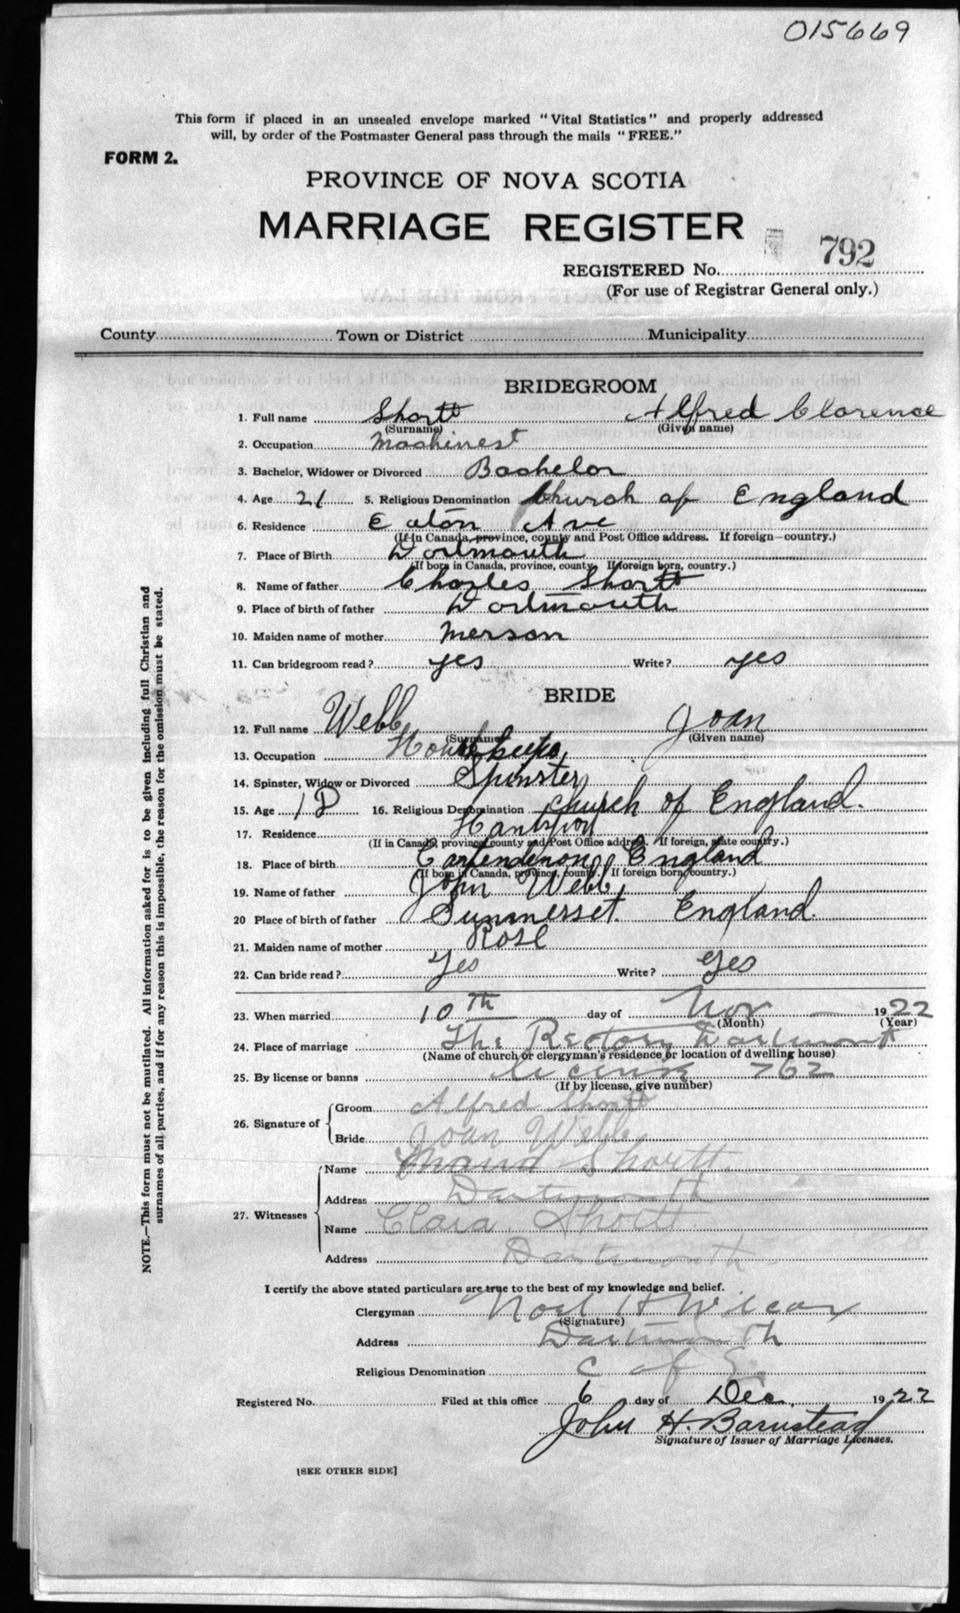 015669
This form if placed in an unsealed envelope marked "Vital Statistics" and properly addressed
will, by order of the Postmaster General pass through the mails "FREE."
FORM 2.
PROVINCE OF NOVA SCOTIA
MARRIAGE REGISTER
792
REGISTERED No.
(For use of Registrar General only.)
County Town or District Municipality
BRIDEGROOM
1. Full name Shortt Alfred Clarence
(Surname) (Given name)
2. Occupation Machinest
3. Bachelor, Widower or Divorced Bachelor
4. Age 21 5. Religious Denomination Church of England
6. Residence Eaton Ave
(If in Canada, province, county and Post Office address. If foreign—country.)
7. Place of Birth Dartmouth
(If born in Canada, province, county. If foreign born, country.)
8. Name of father Charles Shortt
9. Place of birth of father Dartmouth
10. Maiden name of mother Merson
11. Can bridegroom read? yes Write? yes
BRIDE
12. Full name Webb Joan
(Surname) (Given name)
13. Occupation
14. Spinster, Widow or Divorced Spinster
15. Age 18 16. Religious Denomination Church of England.
17. Residence
(If in Canada, province, county and Post Office address. If foreign, state country.)
18. Place of birth England
(If born in Canada, province, county. If foreign born, country.)
19. Name of father John Webb
20 Place of birth of father Summerset. England.
21. Maiden name of mother Rose
22. Can bride read? Yes Write? Yes
23. When married 10th day of Nov 1922
(Month) (Year)
24. Place of marriage The Rectory Dartmouth
(Name of church or clergyman's residence or location of dwelling house)
25. By license or banns License 762
(If by license, give number)
26. Signature of
Groom Alfred Shortt
Bride Joan Webb
27. Witnesses
Name Maud Shortt
Address Dartmouth
Name Clara Shortt
Address Dartmouth
I certify the above stated particulars are true to the best of my knowledge and belief.
Clergyman Noel H Wilcox
(Signature)
Address Dartmouth
Religious Denomination C of E.
Registered No. Filed at this office 6 day of Dec. 1922
John H. Barnstead
Signature of Issuer of Marriage Licenses.
[SEE OTHER SIDE]
NOTE.—This form must not be mutilated. All information asked for is to be given including full Christian and
surnames of all parties, and if for any reason this is impossible, the reason for the omission must be stated.